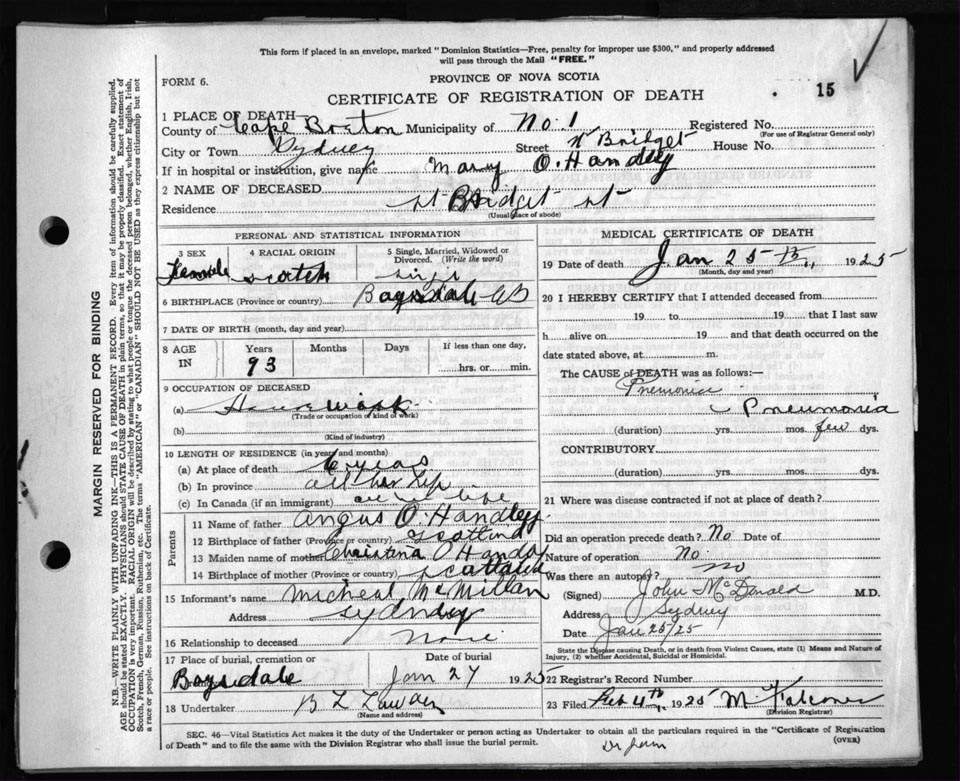 This form if placed in an envelope, marked "Dominion Statistics—Free, penalty for improper use $300," and properly addressed
will pass through the Mail "FREE."
FORM 6.
PROVINCE OF NOVA SCOTIA
15
CERTIFICATE OF REGISTRATION OF DEATH
1 PLACE OF DEATH
County of Cape Breton Municipality of No. 1 Registered No.
(For use of Registrar General only)
City or Town Sydney Street St Bridget House No.
If in hospital or institution, give name
Mary O. Handley
2 NAME OF DECEASED
Residence St Bridget st
(Usual place of abode)
PERSONAL AND STATISTICAL INFORMATION
3 SEX 4 RACIAL ORIGIN 5 Single, Married, Widowed or
Divorced. (Write the word)
Female Scotch Single
6 BIRTHPLACE (Province or country) Boysdale CB
7 DATE OF BIRTH (month, day and year)
8 AGE IN Years Months Days If less than one day,
93 hrs. or min.
9 OCCUPATION OF DECEASED
(a) House Work
(Trade or occupation or kind of work)
(b)
(Kind of industry)
10 LENGTH OF RESIDENCE (in years and months)
(a) At place of death
(b) In province all her life
(c) In Canada (if an immigrant) all her life
Parents
11 Name of father Angus O. Handley
12 Birthplace of father (Province or country) Scotland
13 Maiden name of mother Christina O Handly
14 Birthplace of mother (Province or country) Scotland
15 Informant's name Micheal McMillan
Address Sydney
16 Relationship to deceased None
17 Place of burial, cremation or Date of burial
Boysdale Jan 27 1925
18 Undertaker
(Name and address)
MEDICAL CERTIFICATE OF DEATH
19 Date of death Jan 25 th 1925
(Month, day and year)
20 I HEREBY CERTIFY that I attended deceased from
19 to 19 that I last saw
h alive on 19 and that death occurred on the
date stated above, at m.
The CAUSE of DEATH was as follows:—
Pnemonia
Pneumonia
(duration) yrs. mos. few dys.
CONTRIBUTORY
(duration) yrs. mos. dys.
21 Where was disease contracted if not at place of death?
Did an operation precede death? No Date of
Nature of operation No.
Was there an autopsy? no
(Signed) John McDonald M.D.
Address Sydney
Date Jan 25/25
State the Disease causing Death, or in death from Violent Causes, state (1) Means and Nature of
Injury, (2) whether Accidental, Suicidal or Homicidal.
22 Registrar's Record Number
23 Filed Feb 4th 1925
(Division Registrar)
SEC. 46—Vital Statistics Act makes it the duty of the Undertaker or person acting as Undertaker to obtain all the particulars required in the "Certificate of Registration
of Death" and to file the same with the Division Registrar who shall issue the burial permit.
(OVER)
MARGIN RESERVED FOR BINDING
N.B.—WRITE PLAINLY WITH UNFADING INK—THIS IS A PERMANENT RECORD. Every item of information should be carefully supplied.
AGE should be stated EXACTLY. PHYSICIANS should STATE CAUSE OF DEATH in plain terms, so that it may be properly classified. Exact statement of
OCCUPATION is very important. RACIAL ORIGIN will be described by stating to what people or tongue the deceased person belonged, whether English, Irish,
Scotch, French, German, Russian, Ruthenian, etc. The terms "AMERICAN" or "CANADIAN" SHOULD NOT BE USED as they express citizenship but not
a race or people. See instructions on back of Certificate.